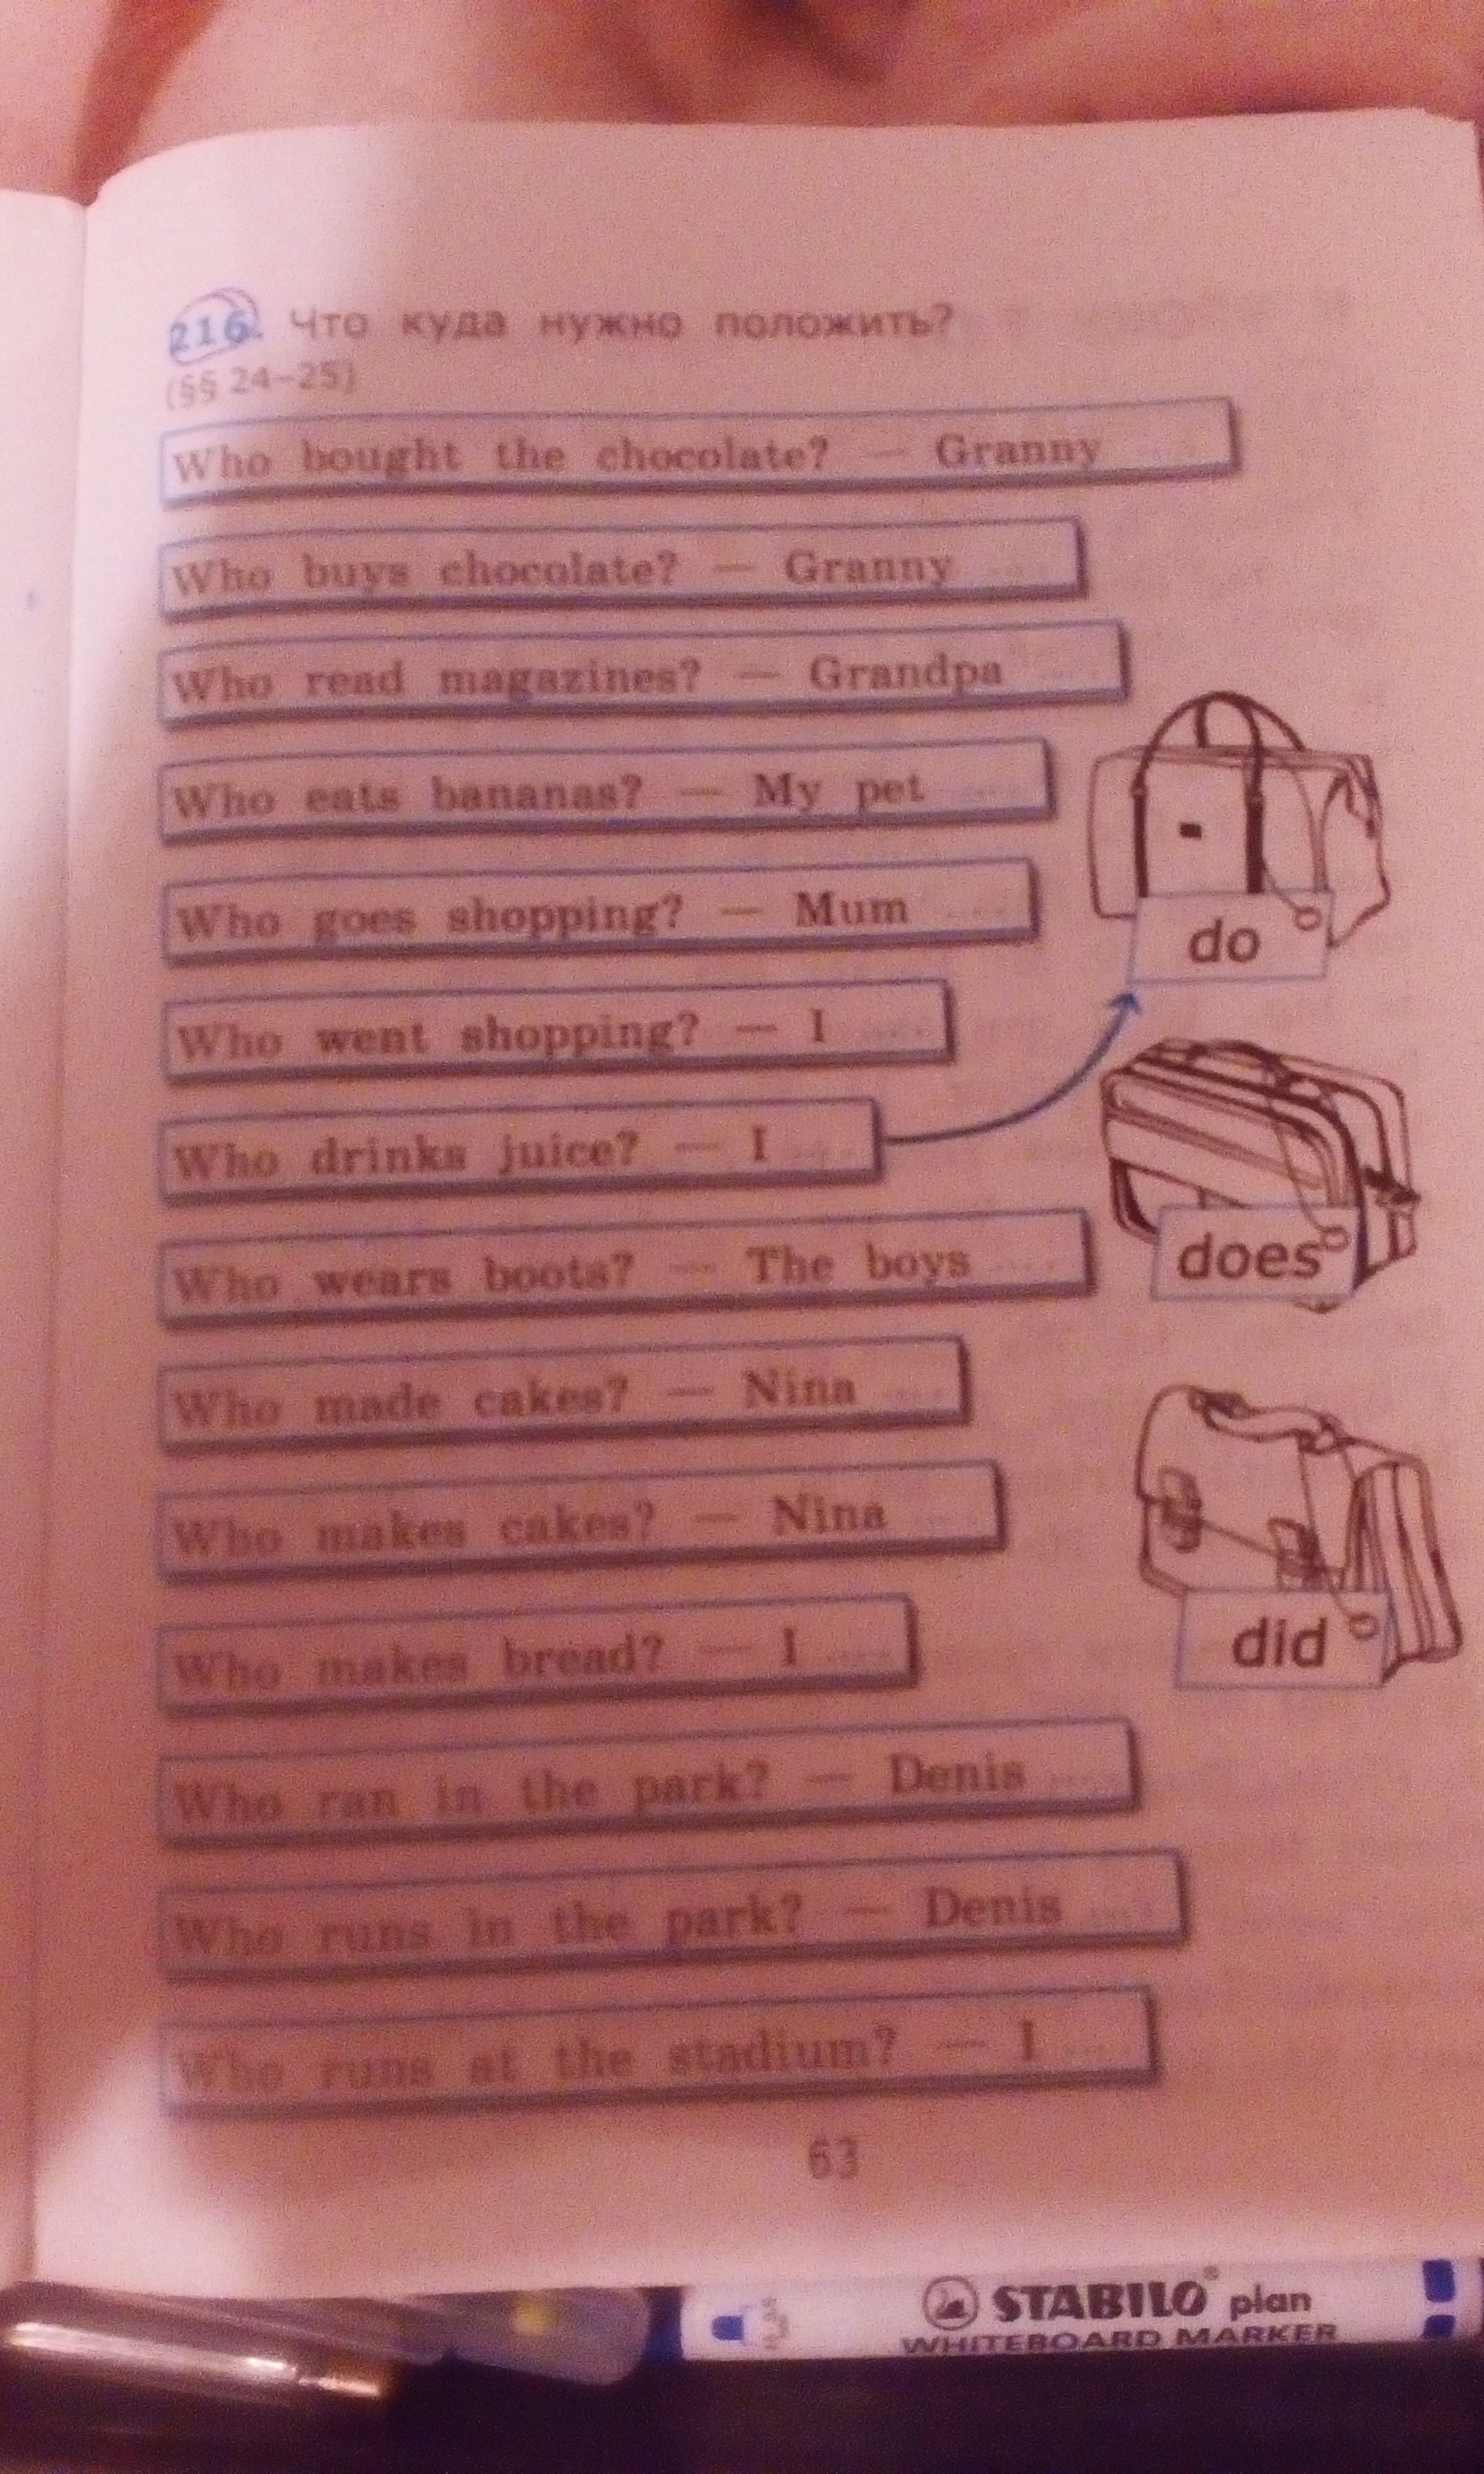 216. Что куда нужно положить?
(§§ 24–25)
Who bought the chocolate? — Granny ....
Who buys chocolate? — Granny ....
Who read magazines? — Grandpa ....
Who eats bananas? — My pet ....
Who goes shopping? — Mum ....
Who went shopping? — I ....
Who drinks juice? — I ....
Who wears boots? — The boys ....
Who made cakes? — Nina ....
Who makes cakes? — Nina ....
Who makes bread? — I ....
Who ran in the park? — Denis ....
Who runs in the park? — Denis ....
Who runs at the stadium? — I ....
do
does
did
63
STABILO® plan
WHITEBOARD MARKER